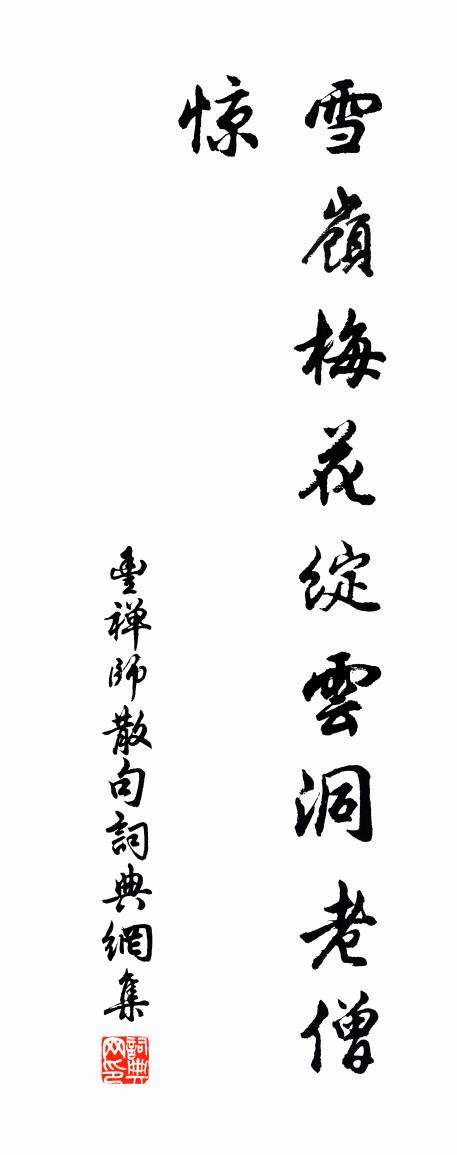 雪嶺梅花綻雲洞老僧
惊
豊禅師散句詞典網集
詞典网印